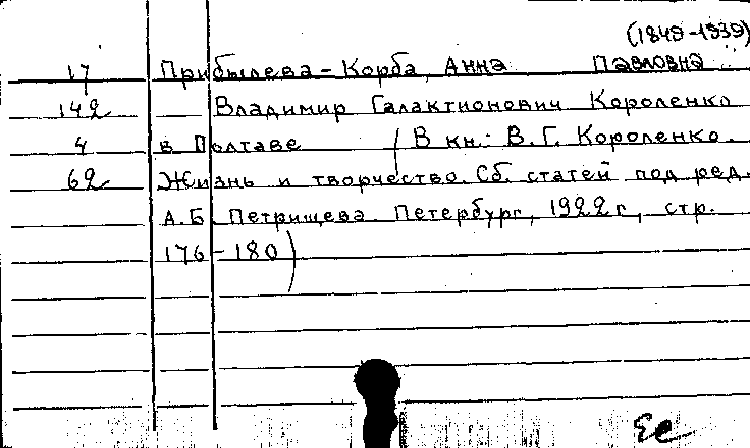 (1849-1939)
17 Прибылева-Корба, Анна Павловна
142 Владимир Галактионович Короленко
4 в Полтаве (В кн.: В.Г. Короленко.
62 Жизнь и творчество. Сб. статей под ред.
А.Б. Петрищева. Петербург, 1922 г, стр.
176-180)